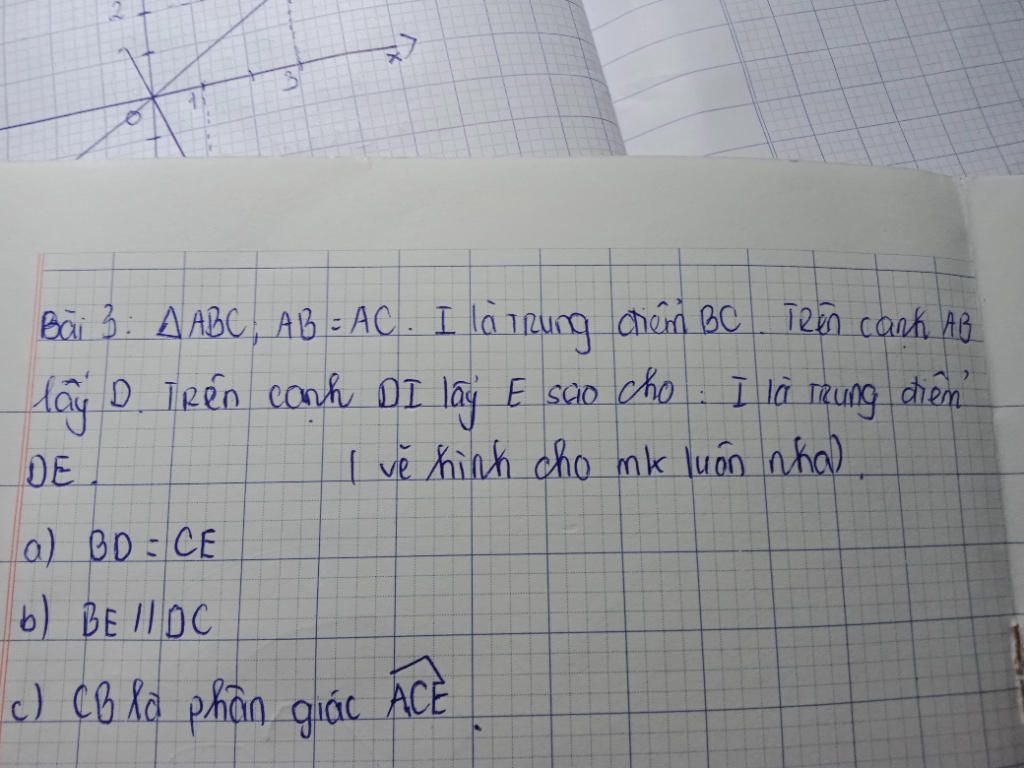 2
O 1 3 x
Bài 3: ΔABC, AB = AC. I là Trung điểm BC. Trên cạnh AB
lấy D. Trên cạnh DI lấy E sao cho: I là Trung điểm
DE. (vẽ hình cho mk luôn nha).
a) BD = CE
b) BE // DC
c) CB là phân giác \widehat{ACE}.